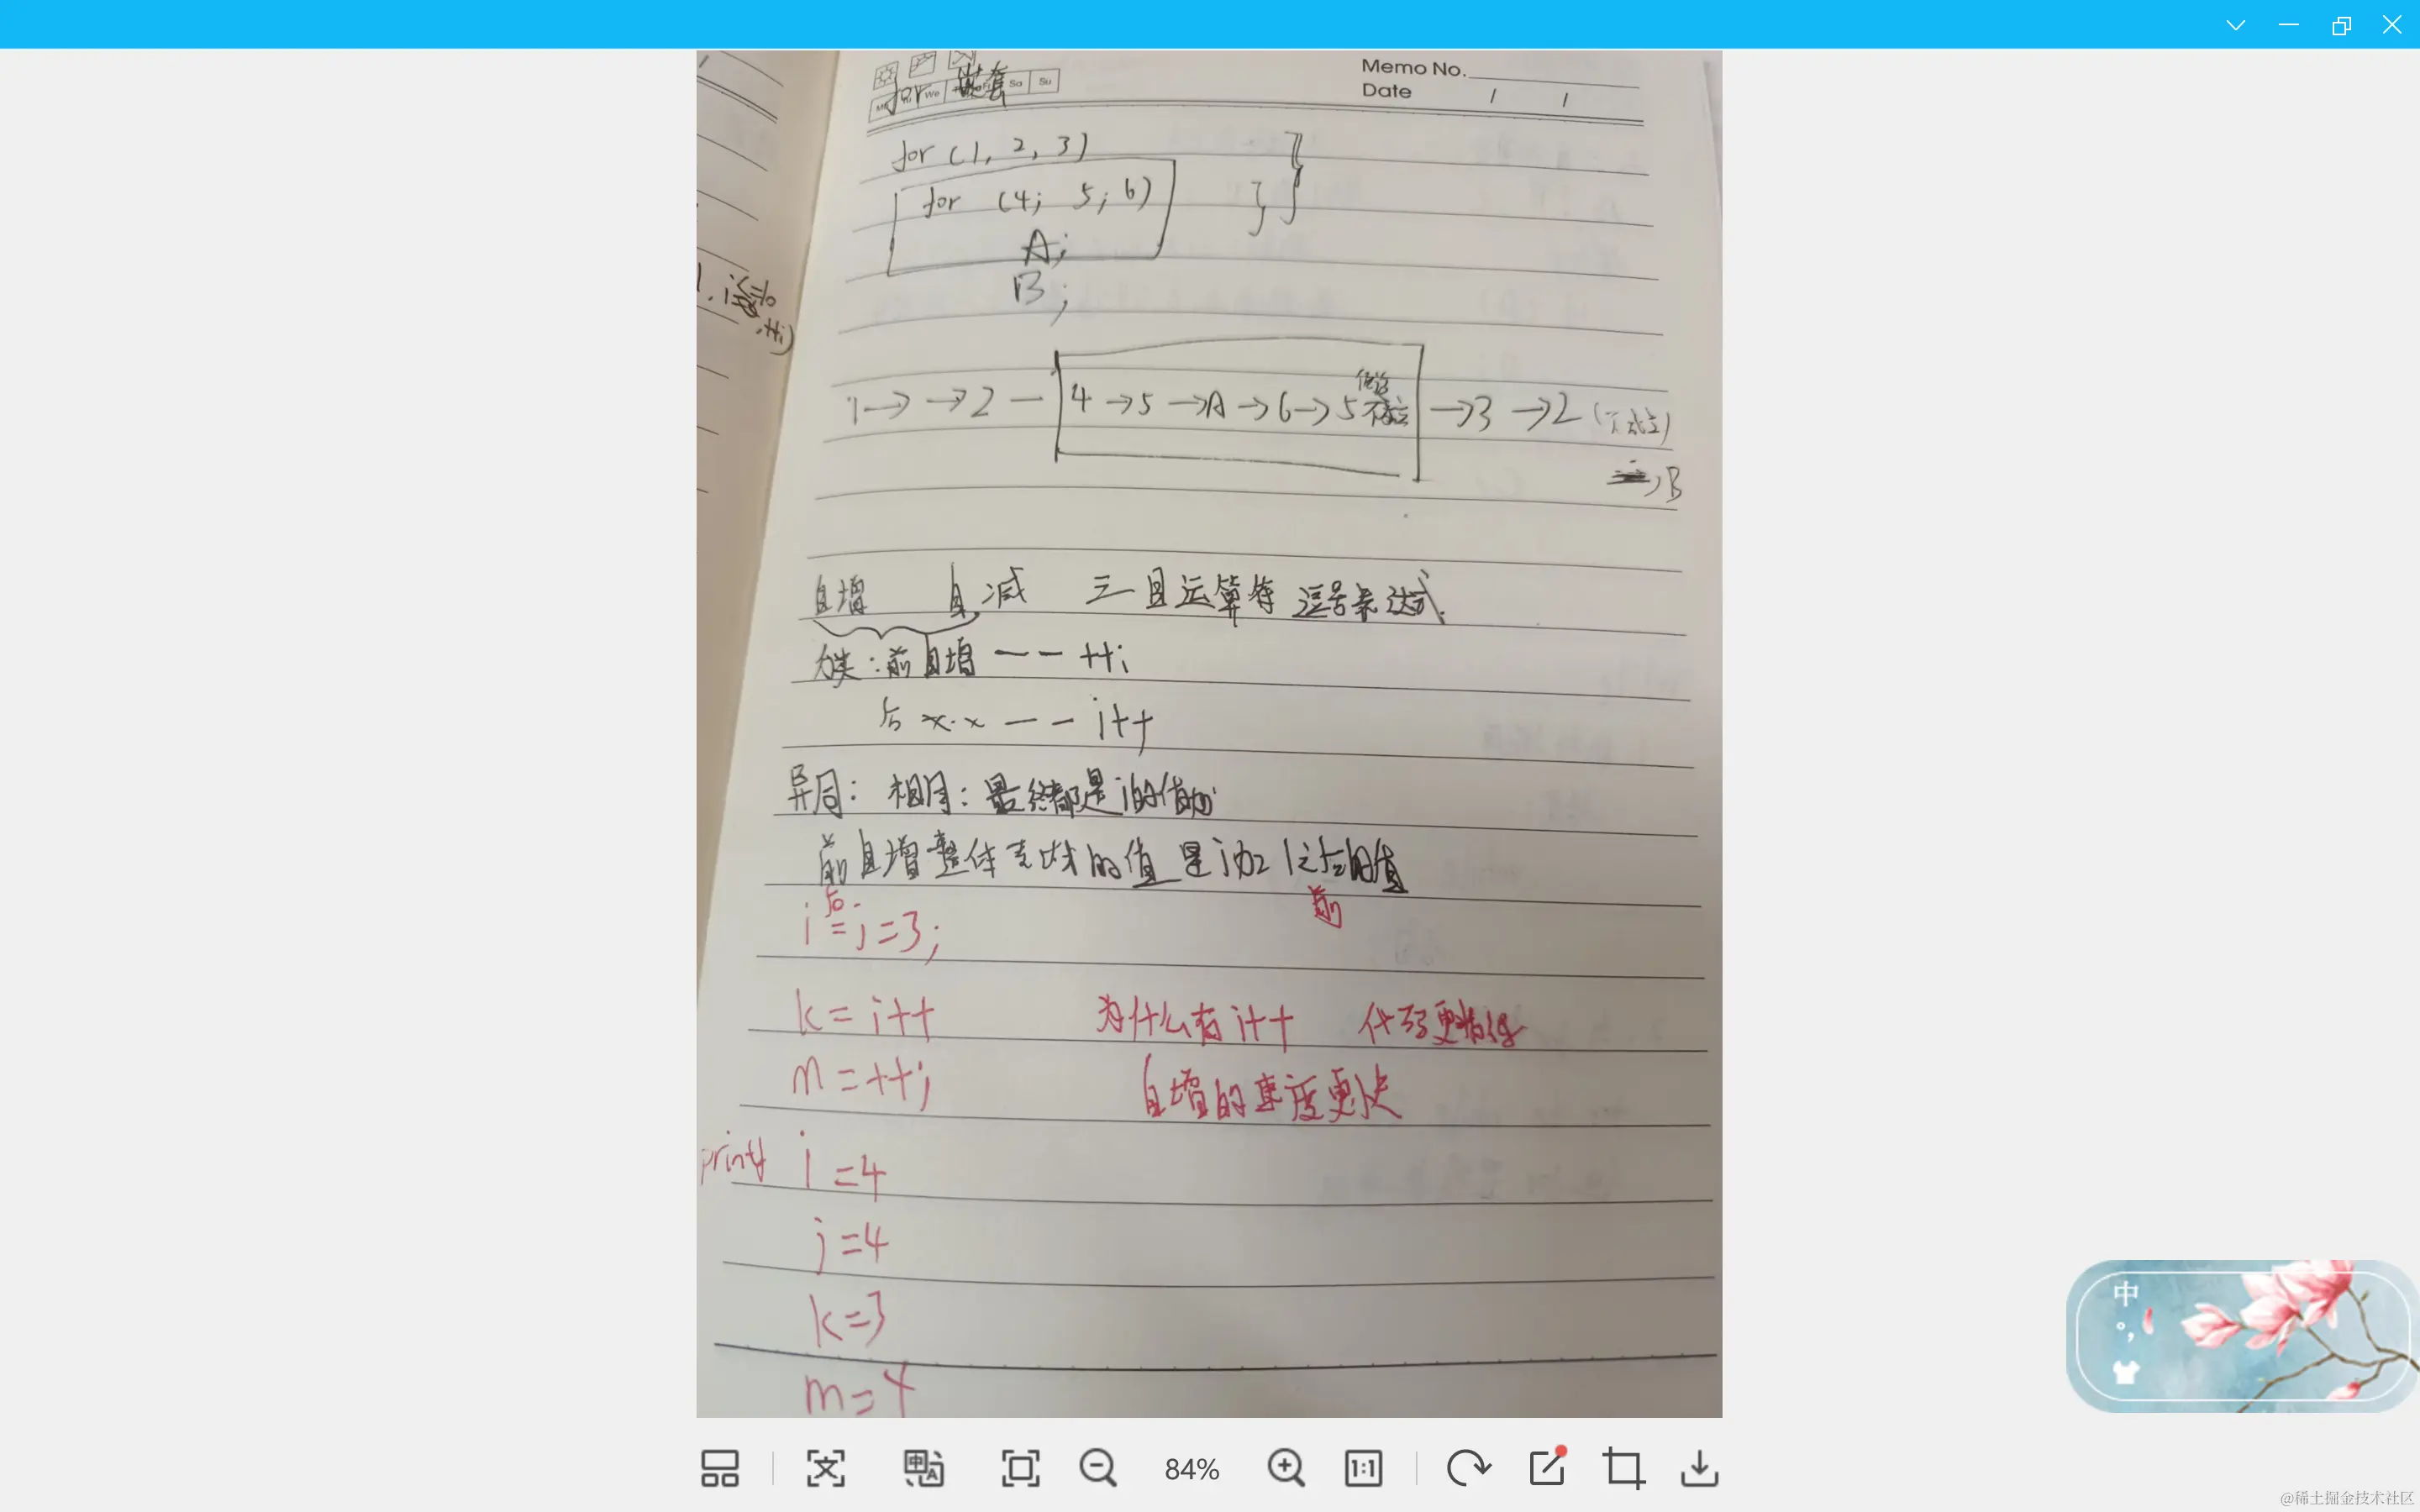 Memo No.
Date / /
We Sa Su
for 嵌套
for (1, 2, 3)
for (4; 5; 6)
A;
B;
1→ →2 — 4 →5 →A →6→5 →3 →2 (不成立)
→B
自增 自减 三目运算符 逗号表达式.
分类: 前自增 —— ++i
后 x.x —— i++
异同: 相同: 最终都是i的值加1
前自增整体表达式的值是i加1之后的值
后 前
i = j = 3;
k = i++ 为什么有i++ 代码更精练
m = ++j 自增的速度更快
printf i = 4
j = 4
k = 3
m = 4
84%
1:1
中
@稀土掘金技术社区